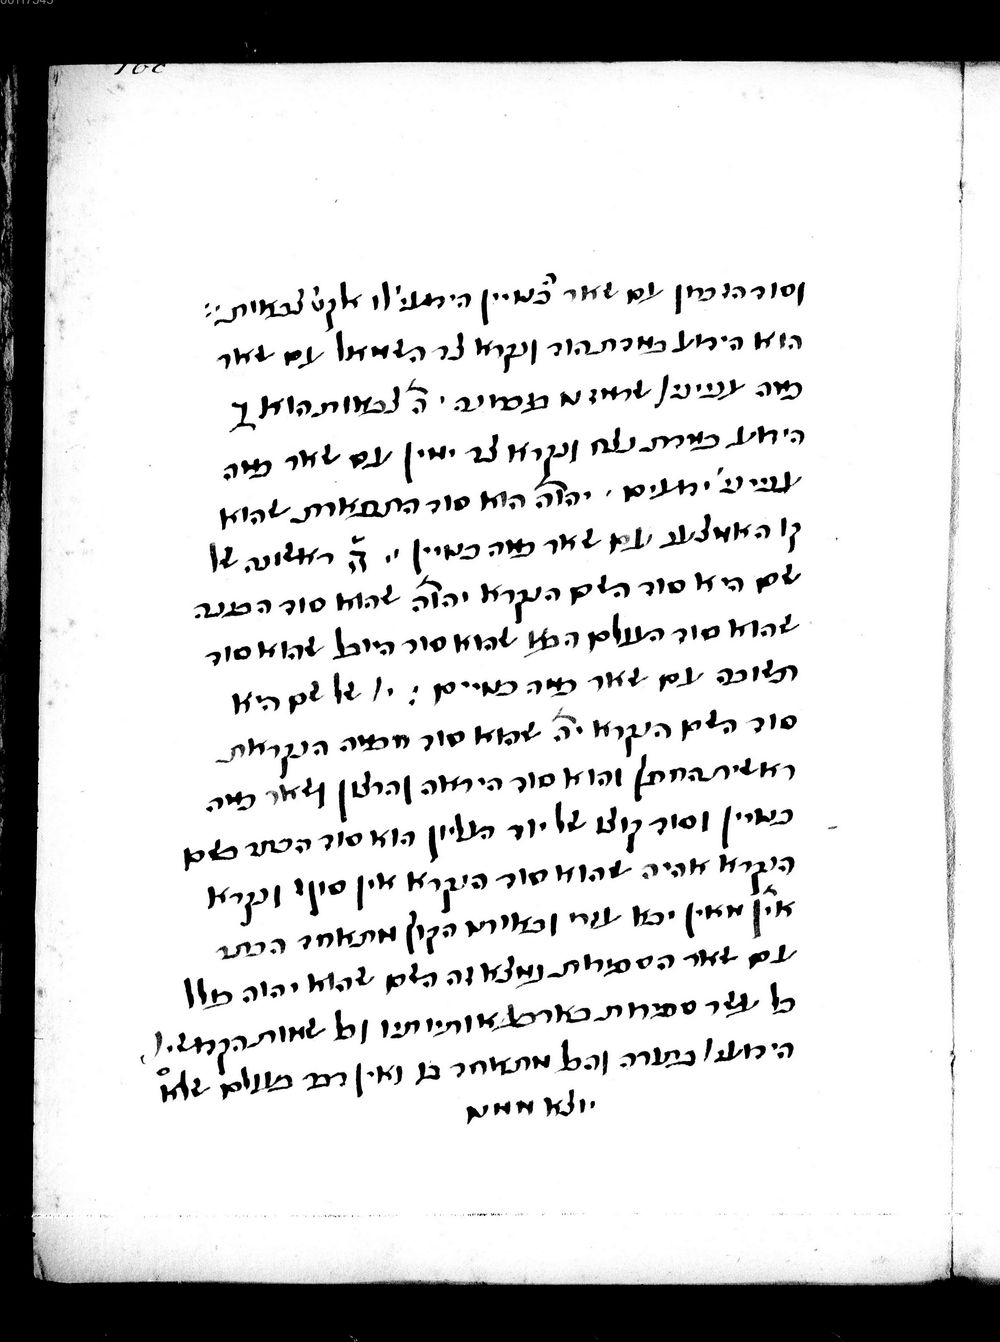 וסוד הזכרון עם שאר כנויין הידועי' לו אלקי' צבאות :
הוא הידוע במדת הוד ונקרא צד השמאל עם שאר
כמה עניינים שרמזנו בעמינה · יה' צבאות הוא
הידוע במדת נצח ונקרא צד ימין עם שאר כמה
עניינים ידועים · יהוה הוא סוד התפארת שהוא
קו האמצעי עם שאר כמה כנויין · ה ראשונה של
שם היא סוד השם הנקרא יהוה שהוא סוד הבינה
שהוא סוד העולם הבא שהוא סוד היובל שהוא סוד
תשובה עם שאר כמה כנויים : י' של שם היא
סוד השם הנקרא יה שהוא סוד חכמה הנקראת
ראשית והוא סוד היראה והרצון ושאר כמה
כנויין וסוד קוצו של יוד העליון הוא סוד הכתר בשם
הנקרא אהיה שהוא סוד הנקרא אין סוף ונקרא
אין מאין יבא עזרי ובאורות הקוץ מתאחד הכתר
עם שאר הספירות נמצא זה השם שהוא יהוה כולל
כל עשר ספירות בארבע אותיותיו וכל שמות הקדש
הידועים בתורה והכל מתאחד בו ואין דבר בעולם שלא
יוצא ממנו